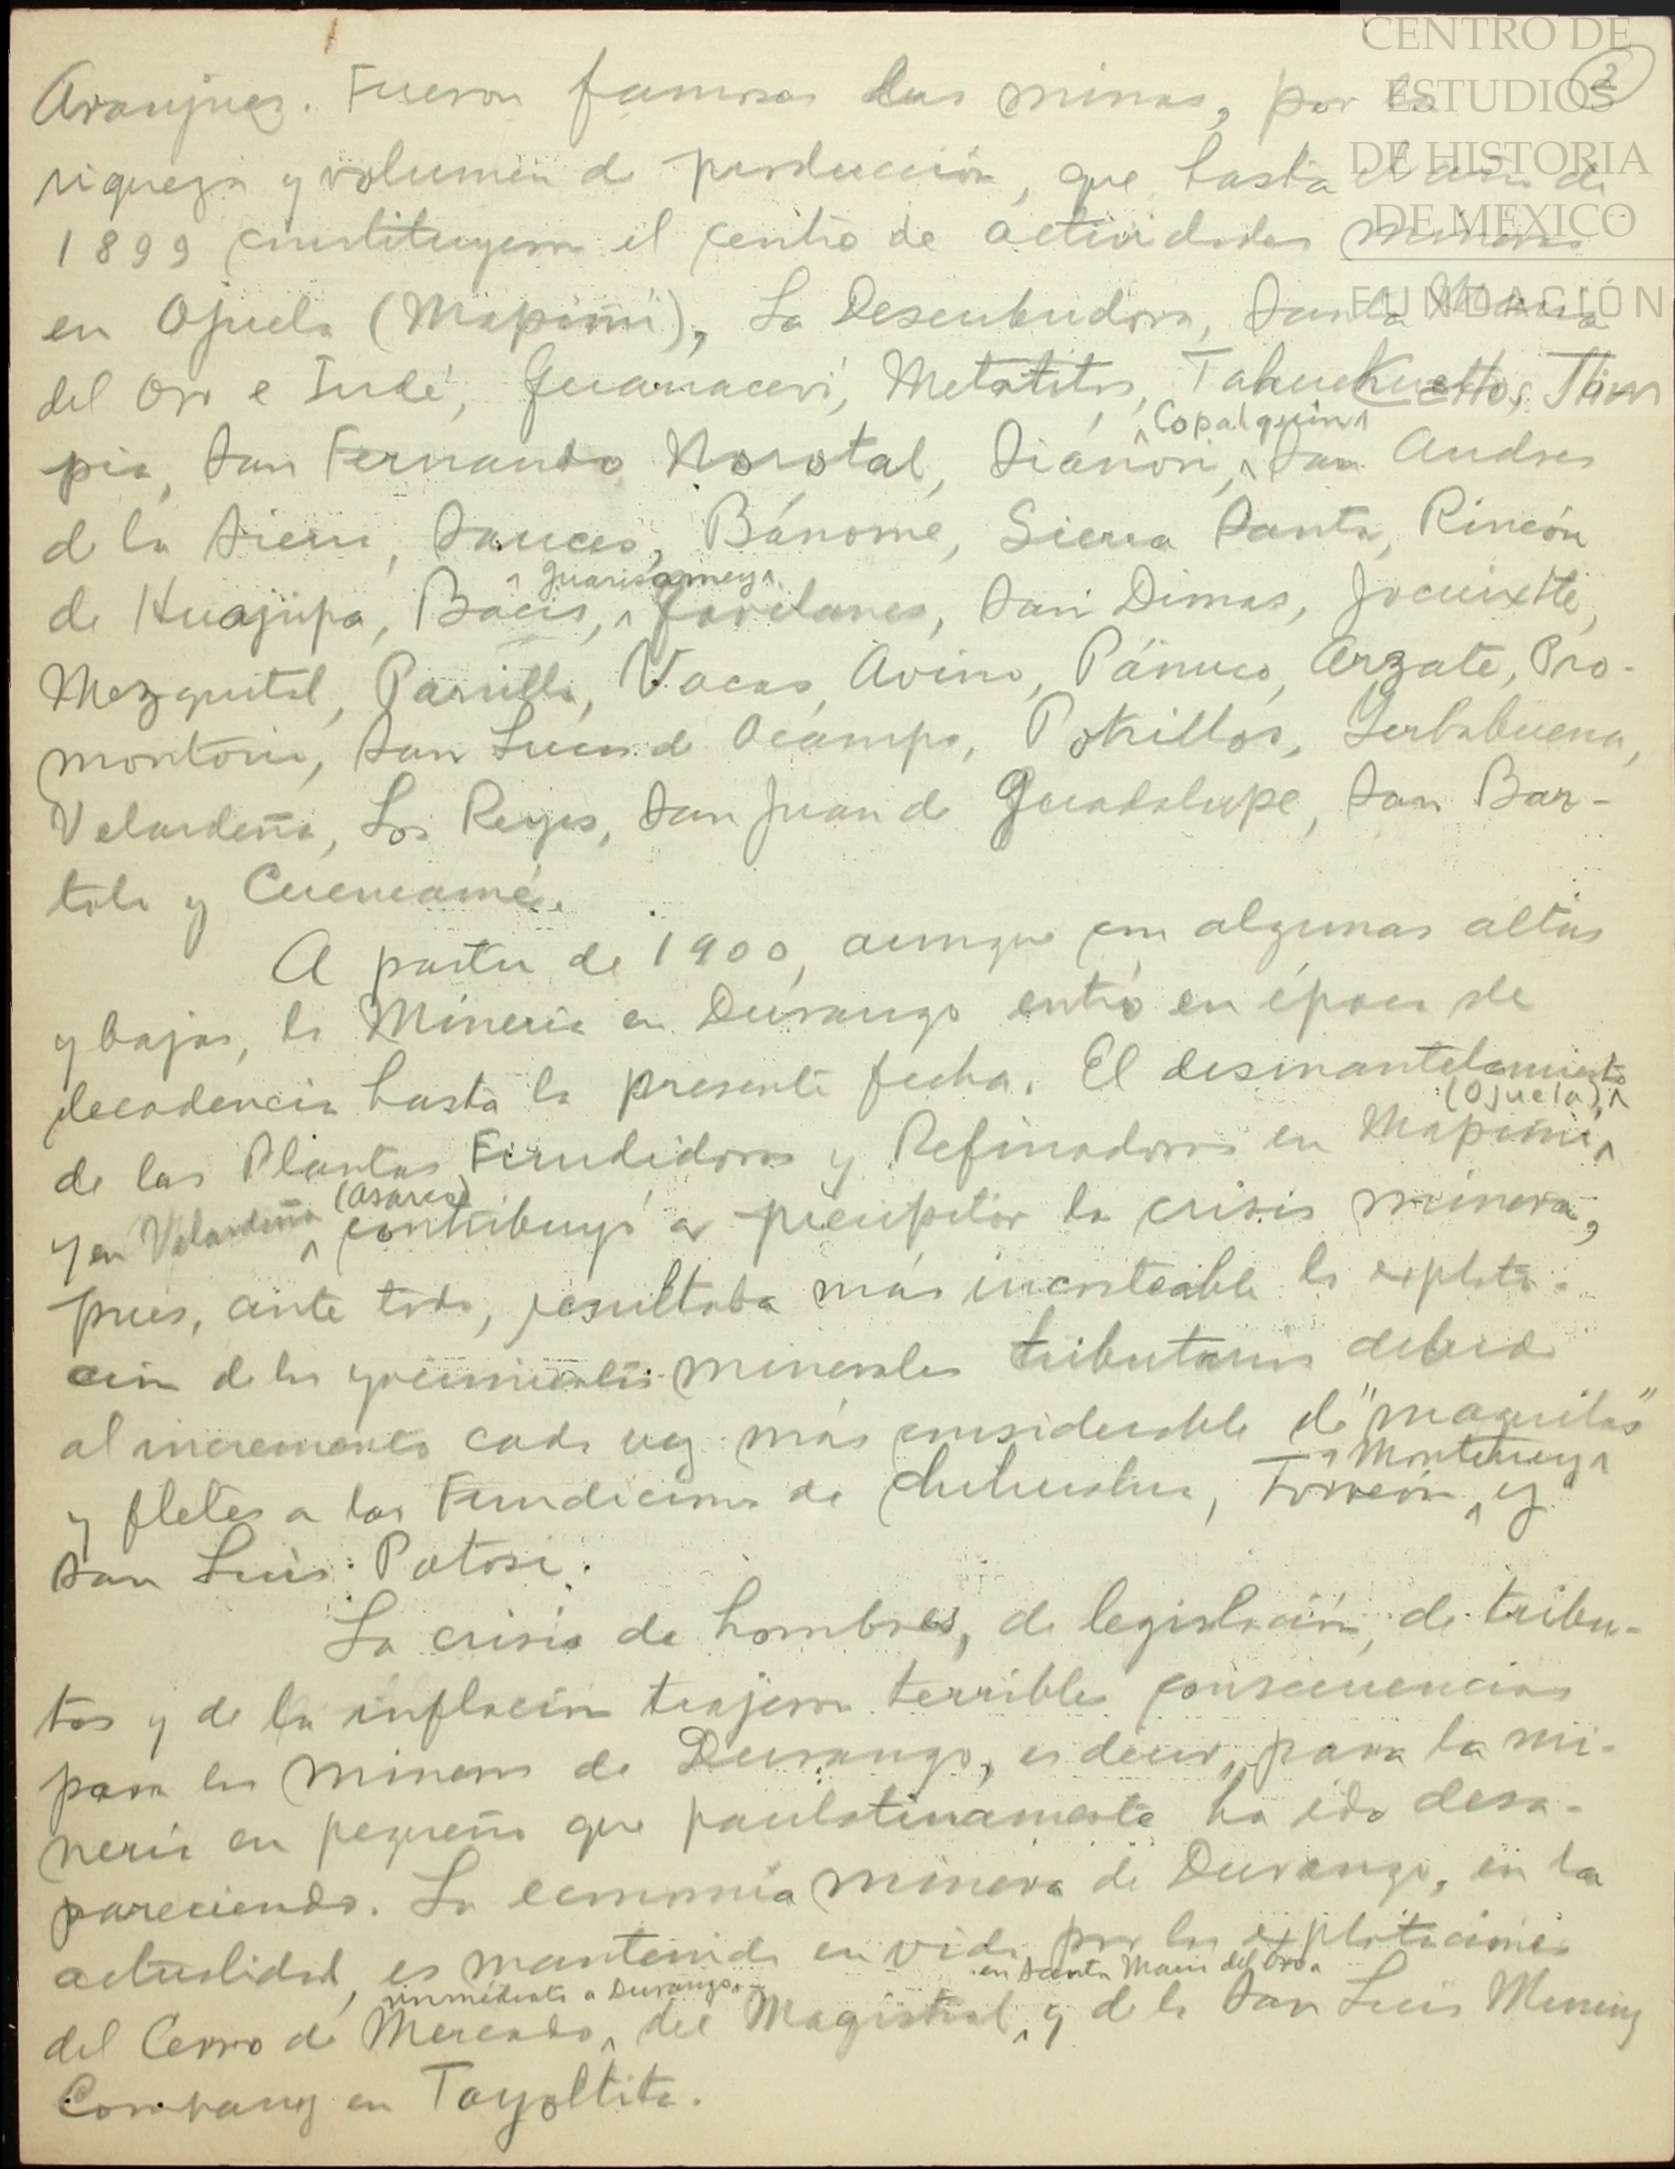 CENTRO DE
ESTUDIOS
DE HISTORIA
DE MEXICO
FUNDACIÓN
2
Aranjuez. Fueron famosas las minas, por la
riqueza y volumen de producción, que hasta el año de
1899 constituyeron el centro de actividades mineras
en Ojuela (Mapimí), La Descubridora, Santa María
del Oro e Indé, Guanaceví, Metatitos, Tahuehueto,
pia, San Fernando, Norotal, Sianori, Copalquin, San Andres
de la Sierra, Sauces, Bánome, Sierra Santa, Rincón
de Huajupa, Bacis, Guarisamey, Gavilanes, San Dimas, Jocuixtle,
Mezquital, Parrilla, Vacas, Avino, Pánuco, Arzate, Pro-
montorio, San Lucas de Ocampo, Potrillos, Yerbabuena,
Velardeña, Los Reyes, San Juan de Guadalupe, San Bar-
tolo y Cuencamé.
A partir de 1900, aunque con algunas altas
y bajas, la Minería en Durango entró en época de
decadencia hasta la presente fecha. El desmantelamiento
de las Plantas Fundidoras y Refinadoras en Mapimí (Ojuela),
y en Velardeña (Asarco) contribuyó a precipitar la crisis minera,
pues, ante todo, resultaba más incosteable la explota-
ción de los yacimientos minerales tributarios debido
al incremento cada vez más considerable de "maquilas"
y fletes a las Fundiciones de Chihuahua, Torreón, Monterrey y
San Luis Potosí.
La crisis de hombres, de legislación, de tribu-
tos y de la inflación trajeron terribles consecuencias
para los mineros de Durango, es decir, para la mi-
nería en pequeño que paulatinamente ha ido desa-
pareciendo. La economía minera de Durango, en la
actualidad, es mantenida en vida por las explotaciones
del Cerro de Mercado, inmediato a Durango, del Magistral, en Santa María del Oro, y de la San Luis Mining
Company en Tayoltita.